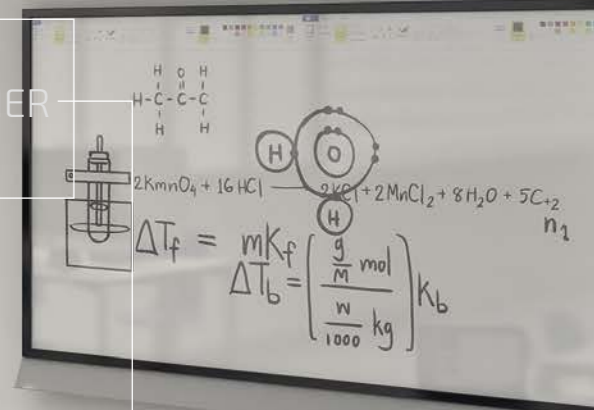 ER
H O H
H-C-C-C
H H
H O
2KmnO₄ + 16 HCl 2KCl + 2MnCl₂ + 8H₂O + 5C+2
H
n₂
ΔT_f = mK_f
ΔT_b = (g/M mol / W/1000 kg) K_b